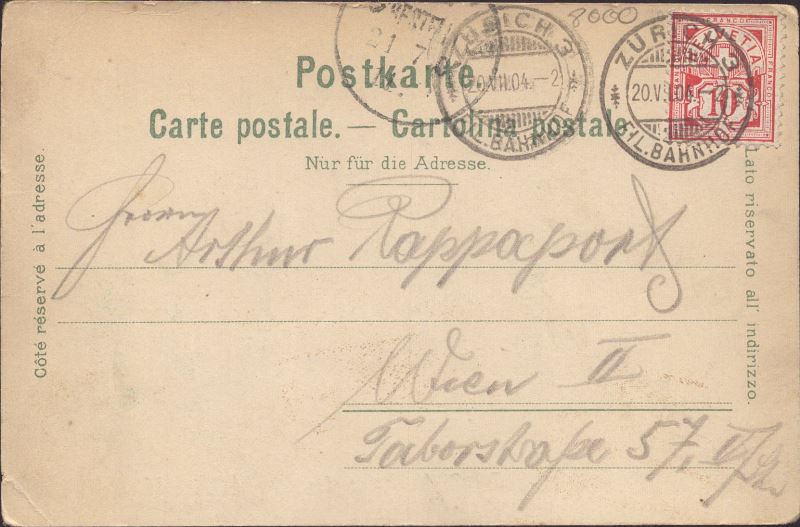 8000
21 7
ZÜRICH 3
20.VII.04.–2
FIL.BAHNHOF
ZÜRICH 3
20.VII.04.–2
FIL.BAHNHOF
FRANCO
HELVETIA
10
Postkarte
Carte postale. — Cartolina postale
Nur für die Adresse.
Côté réservé à l'adresse.
Lato riservato all' indirizzo.
Herrn
Arthur Rappaport
Wien II
Taborstraße 57,